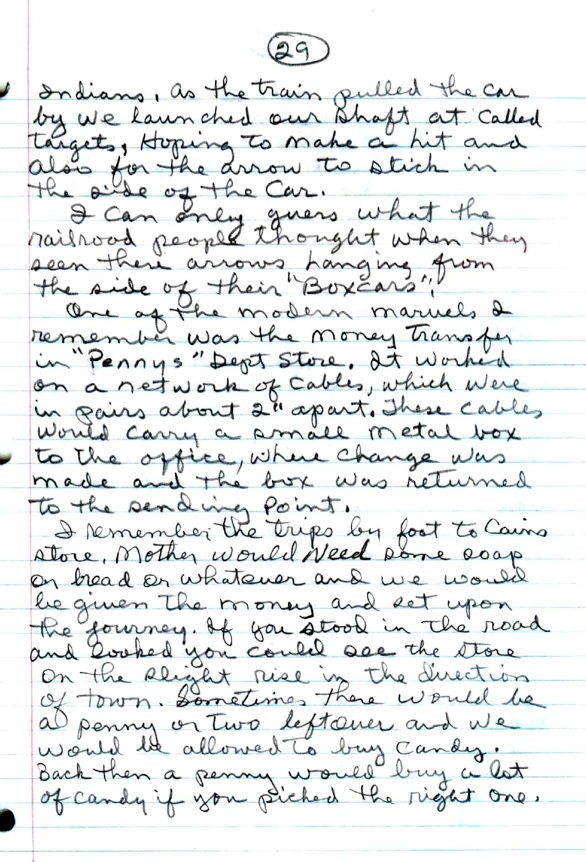 29
Indians. As the train pulled the car
by we launched our shaft at called
targets, Hoping to make a hit and
also for the arrow to stick in
the side of the Car.
I can only guess what the
railroad people thought when they
seen these arrows hanging from
the side of their "Boxcars",!
One of the modern marvels I
remember was the money transfer
in "Pennys" Dept Store. It worked
on a network of Cables, which were
in pairs about 2" apart. These cables
would carry a small metal box
to the office, where change was
made and the box was returned
to the sending Point.
I remember the trips by foot to Cains
store. Mother would Need some soap
or bread or whatever and we would
be given the money and set upon
the journey. If you stood in the road
and looked you could see the store
on the slight rise in the direction
of town. Sometimes there would be
a penny or two leftover and we
would be allowed to buy candy.
Back then a penny would buy a lot
of candy if you picked the right one.